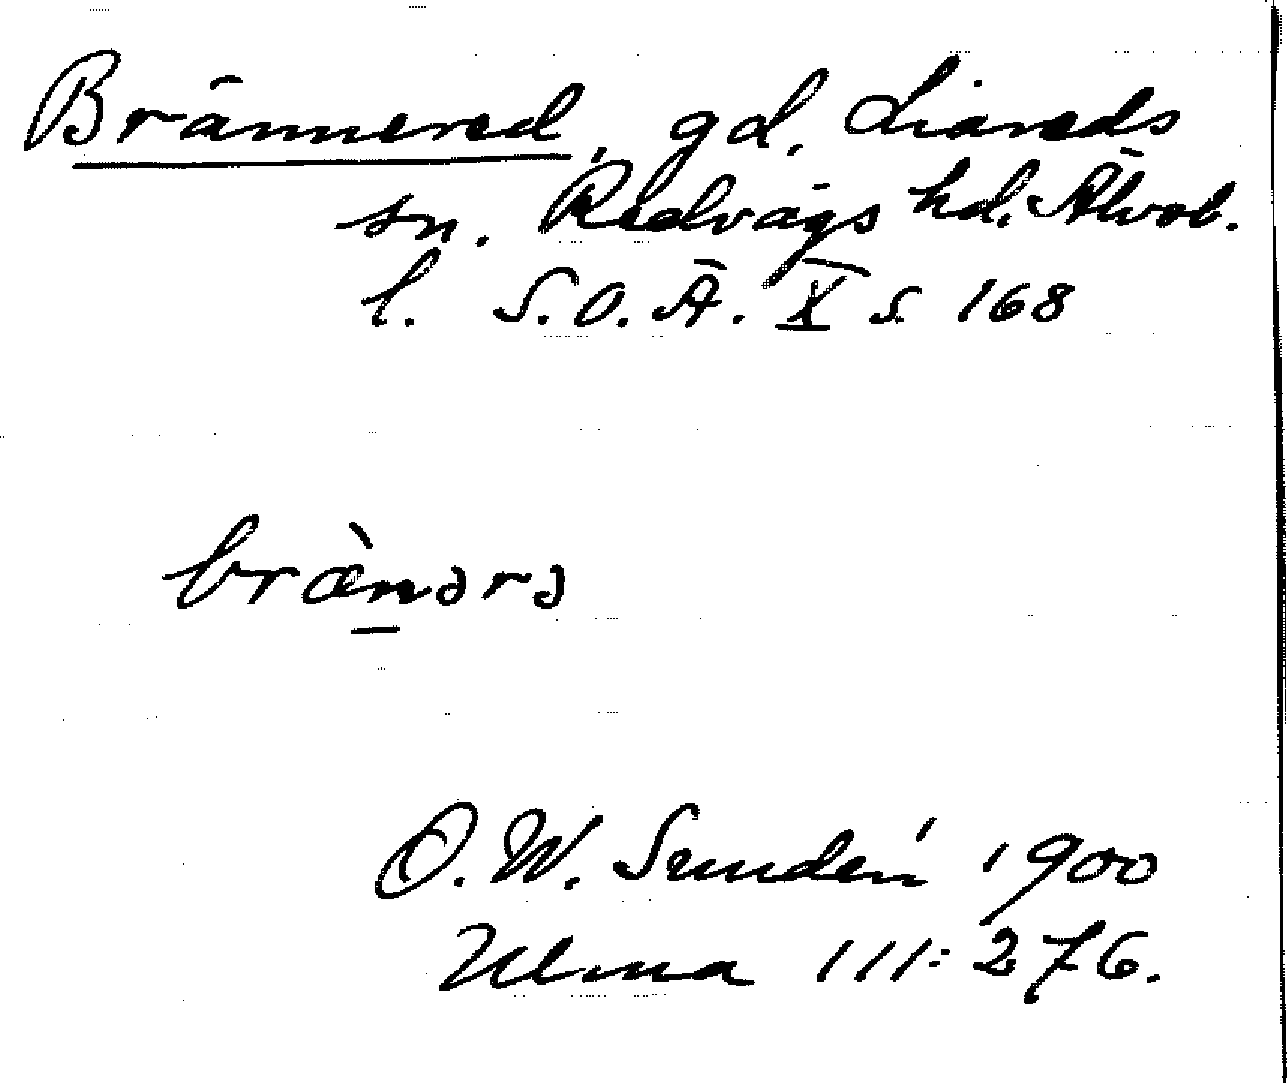 Brännered, gd, Liareds
sn. Redvägs hd. Älvsb.
l. S.O.Ä. X s. 168
bræ̀nərə
O. W. Sundén 1900
Ulma 111:276.